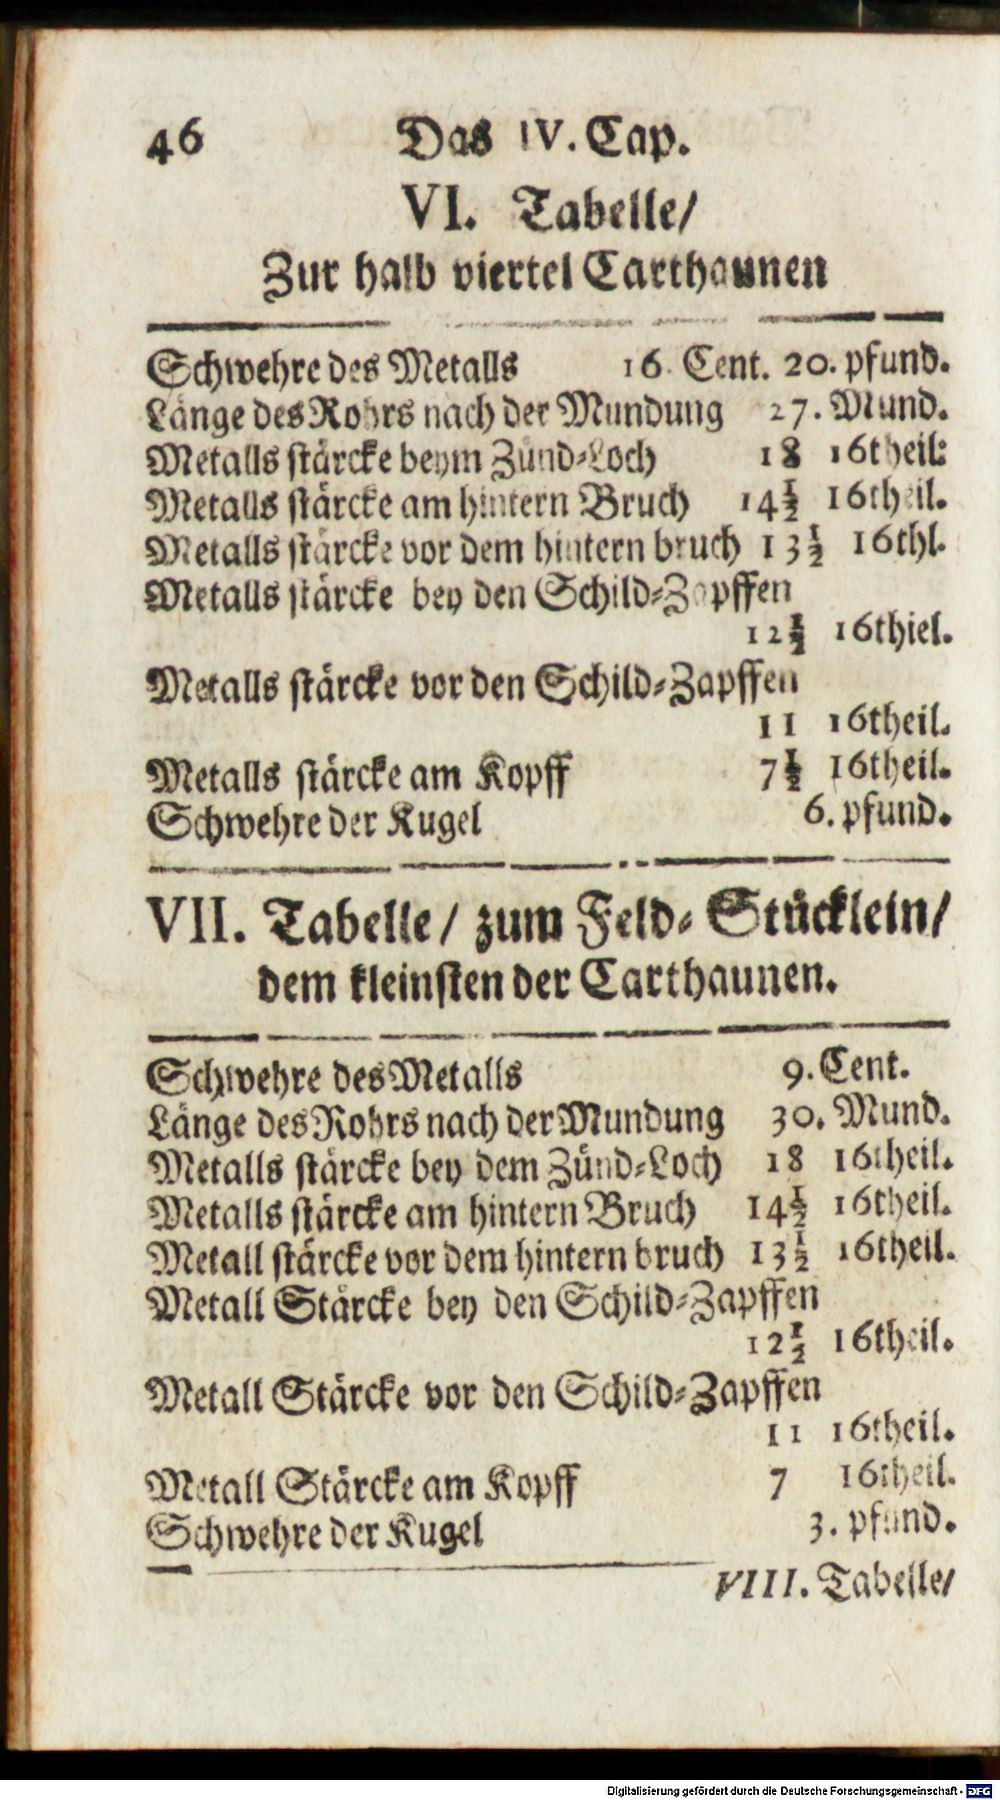 46 Das IV. Cap.
VI. Tabelle/
Zur halb viertel Carthaunen
Schwehre des Metalls 16. Cent. 20. pfund.
Länge des Rohrs nach der Mundung 27. Mund.
Metalls stärcke beym Zünd-Loch 18 16theil:
Metalls stärcke am hintern Bruch 14½ 16theil.
Metalls stärcke vor dem hintern bruch 13½ 16thl.
Metalls stärcke bey den Schild-Zapffen
12½ 16thiel.
Metalls stärcke vor den Schild-Zapffen
11 16theil.
Metalls stärcke am Kopff 7½ 16theil.
Schwehre der Kugel 6. pfund.
VII. Tabelle/ zum Feld-Stücklein/
dem kleinsten der Carthaunen.
Schwehre des Metalls 9. Cent.
Länge des Rohrs nach der Mundung 30. Mund.
Metalls stärcke bey dem Zünd-Loch 18 16theil.
Metalls stärcke am hintern Bruch 14½ 16theil.
Metall stärcke vor dem hintern bruch 13½ 16theil.
Metall Stärcke bey den Schild-Zapffen
12½ 16theil.
Metall Stärcke vor den Schild-Zapffen
11 16theil.
Metall Stärcke am Kopff 7 16theil.
Schwehre der Kugel 3. pfund.
VIII. Tabelle/
Digitalisierung gefördert durch die Deutsche Forschungsgemeinschaft - DFG